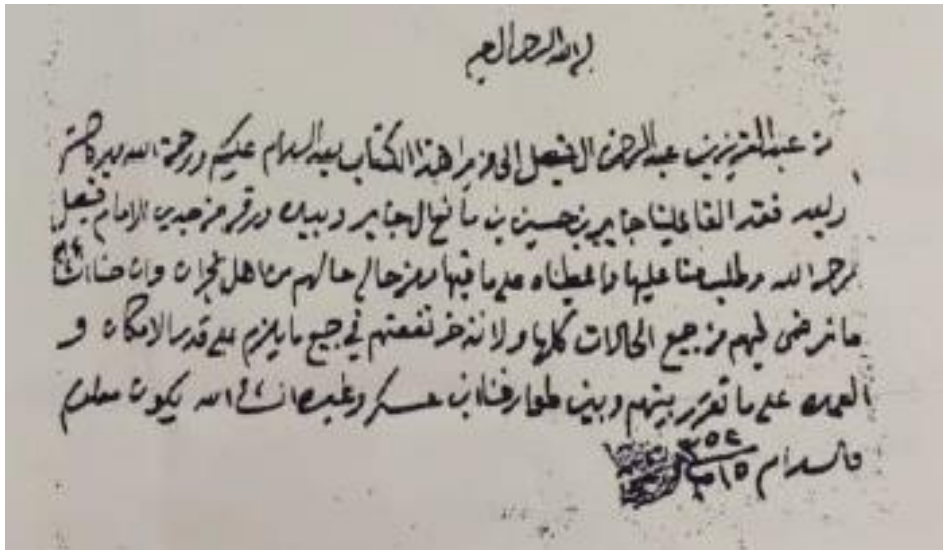 بسم الله الرحمن الرحيم
من عبد العزيز بن عبد الرحمن الفيصل الى من يراه هذا الكتاب بعد السلام عليكم ورحمة الله وبركاته
وبعد فقد الفا علينا جابر بن حسين بن مانع ال جابر وبيده ورقه من جدي الامام فيصل
رحمه الله وطلب منا عليها واعطيناه على ما فيها من حال حالهم من اهل نجران وان حنا ان شاء الله
ما نرضى عليهم من جميع الحالات كلها ولا ندخر نفعتهم في جميع ما يلزم على قدر الامكان و
العمده على ما تقرر بينهم وبين عسكر وغيره ان شاء الله يكون معلوم
والسلام ١٥ ٣٥٢